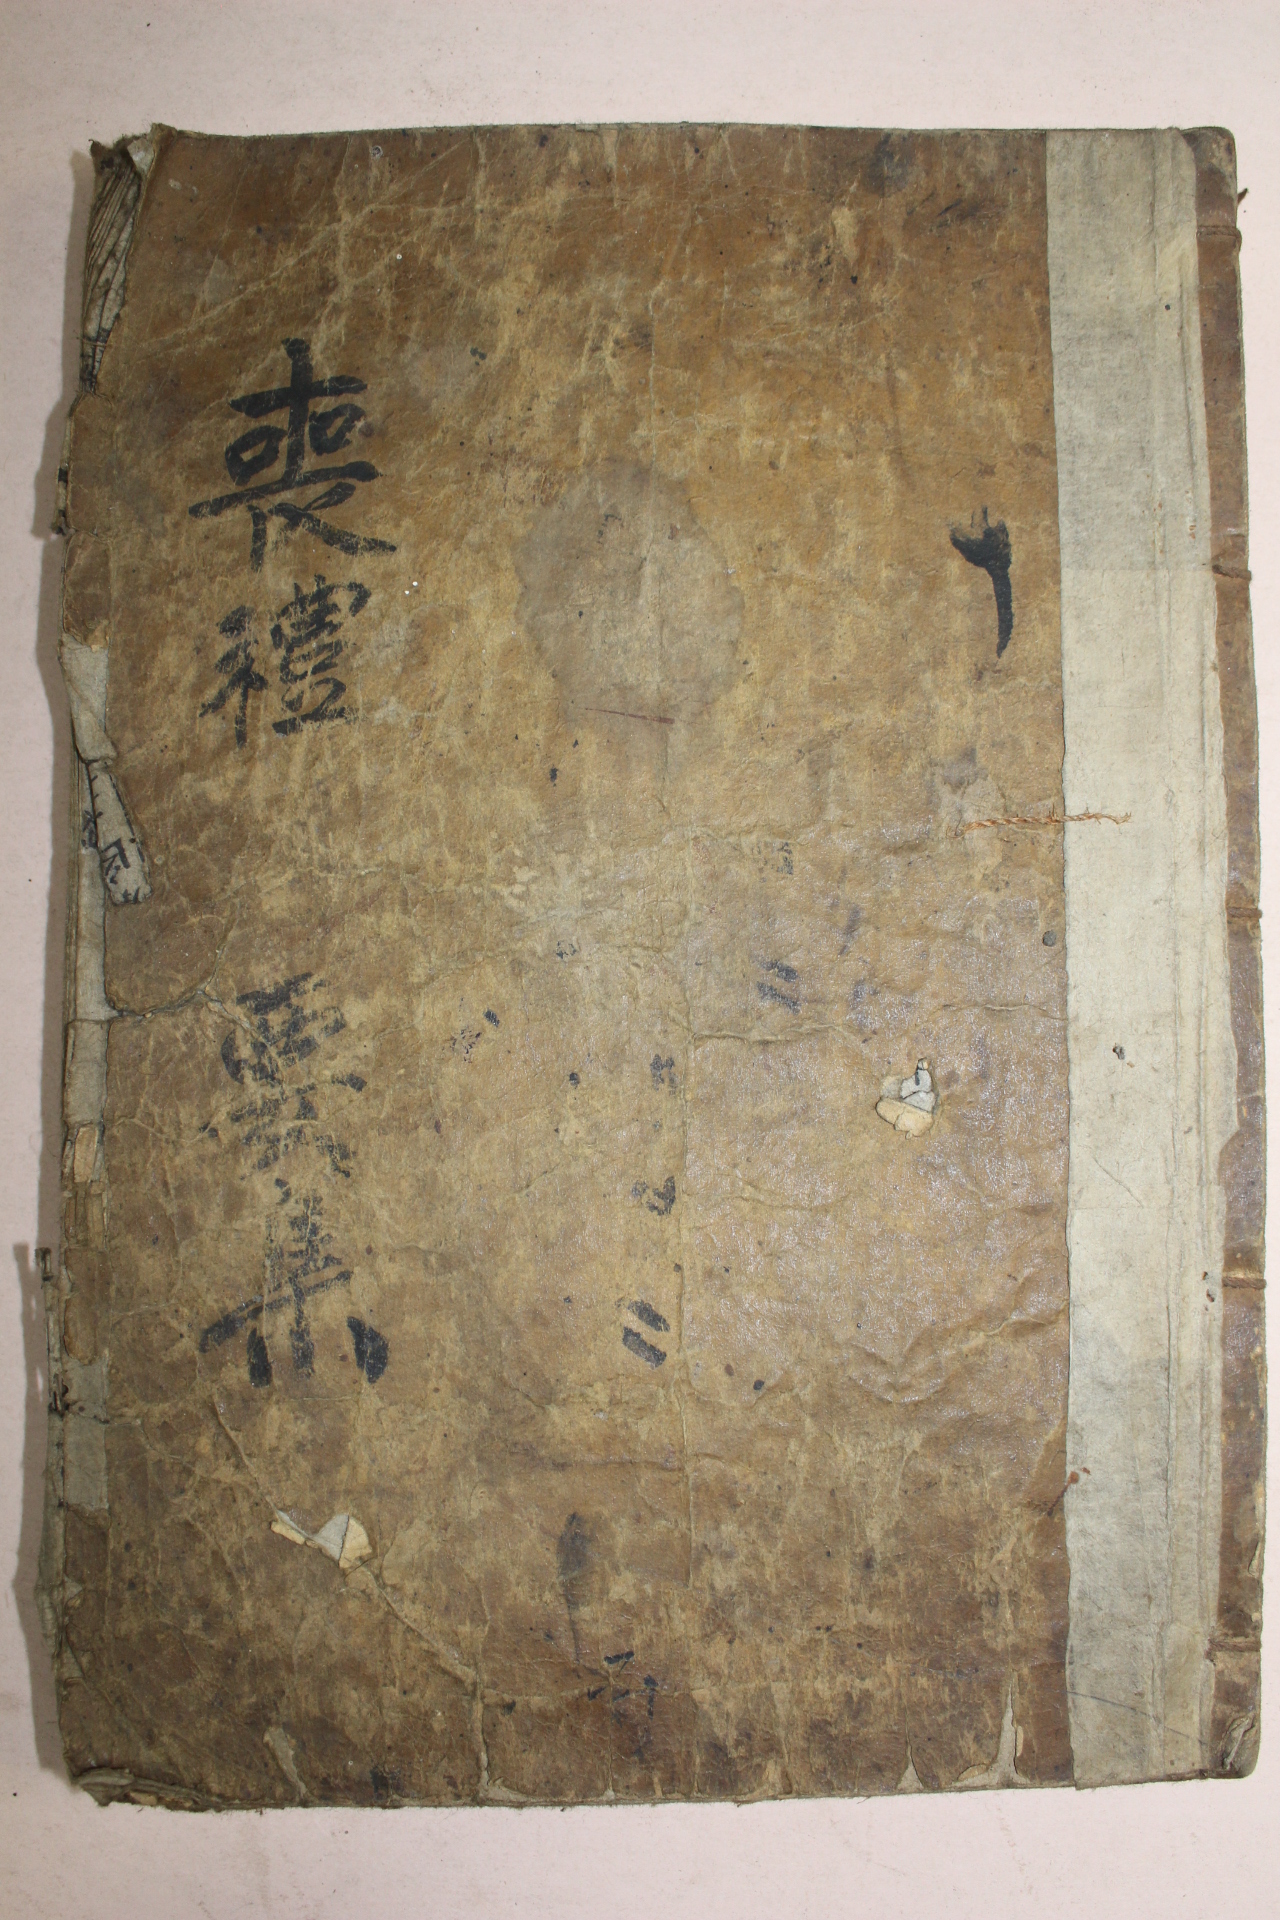 喪禮要集